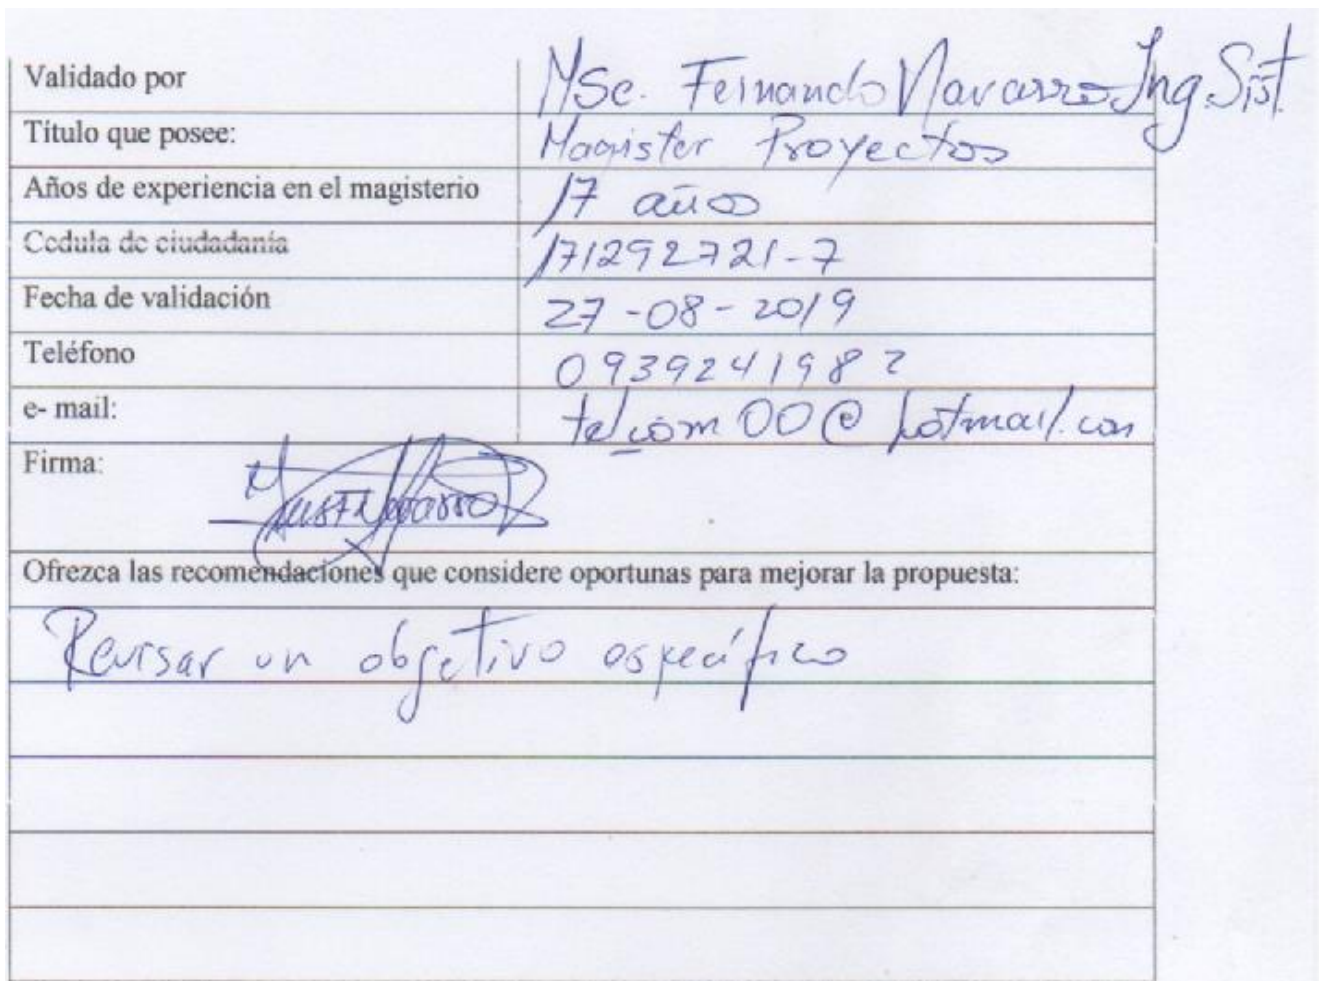 Validado por MSc. Fernando Navarro Ing. Sist.
Título que posee: Magister Proyectos
Años de experiencia en el magisterio 17 años
Cedula de ciudadanía 171292721-7
Fecha de validación 27-08-2019
Teléfono 0939241982
e- mail: telcom00@hotmail.com
Firma:
Ofrezca las recomendaciones que considere oportunas para mejorar la propuesta:
Revisar un objetivo específico